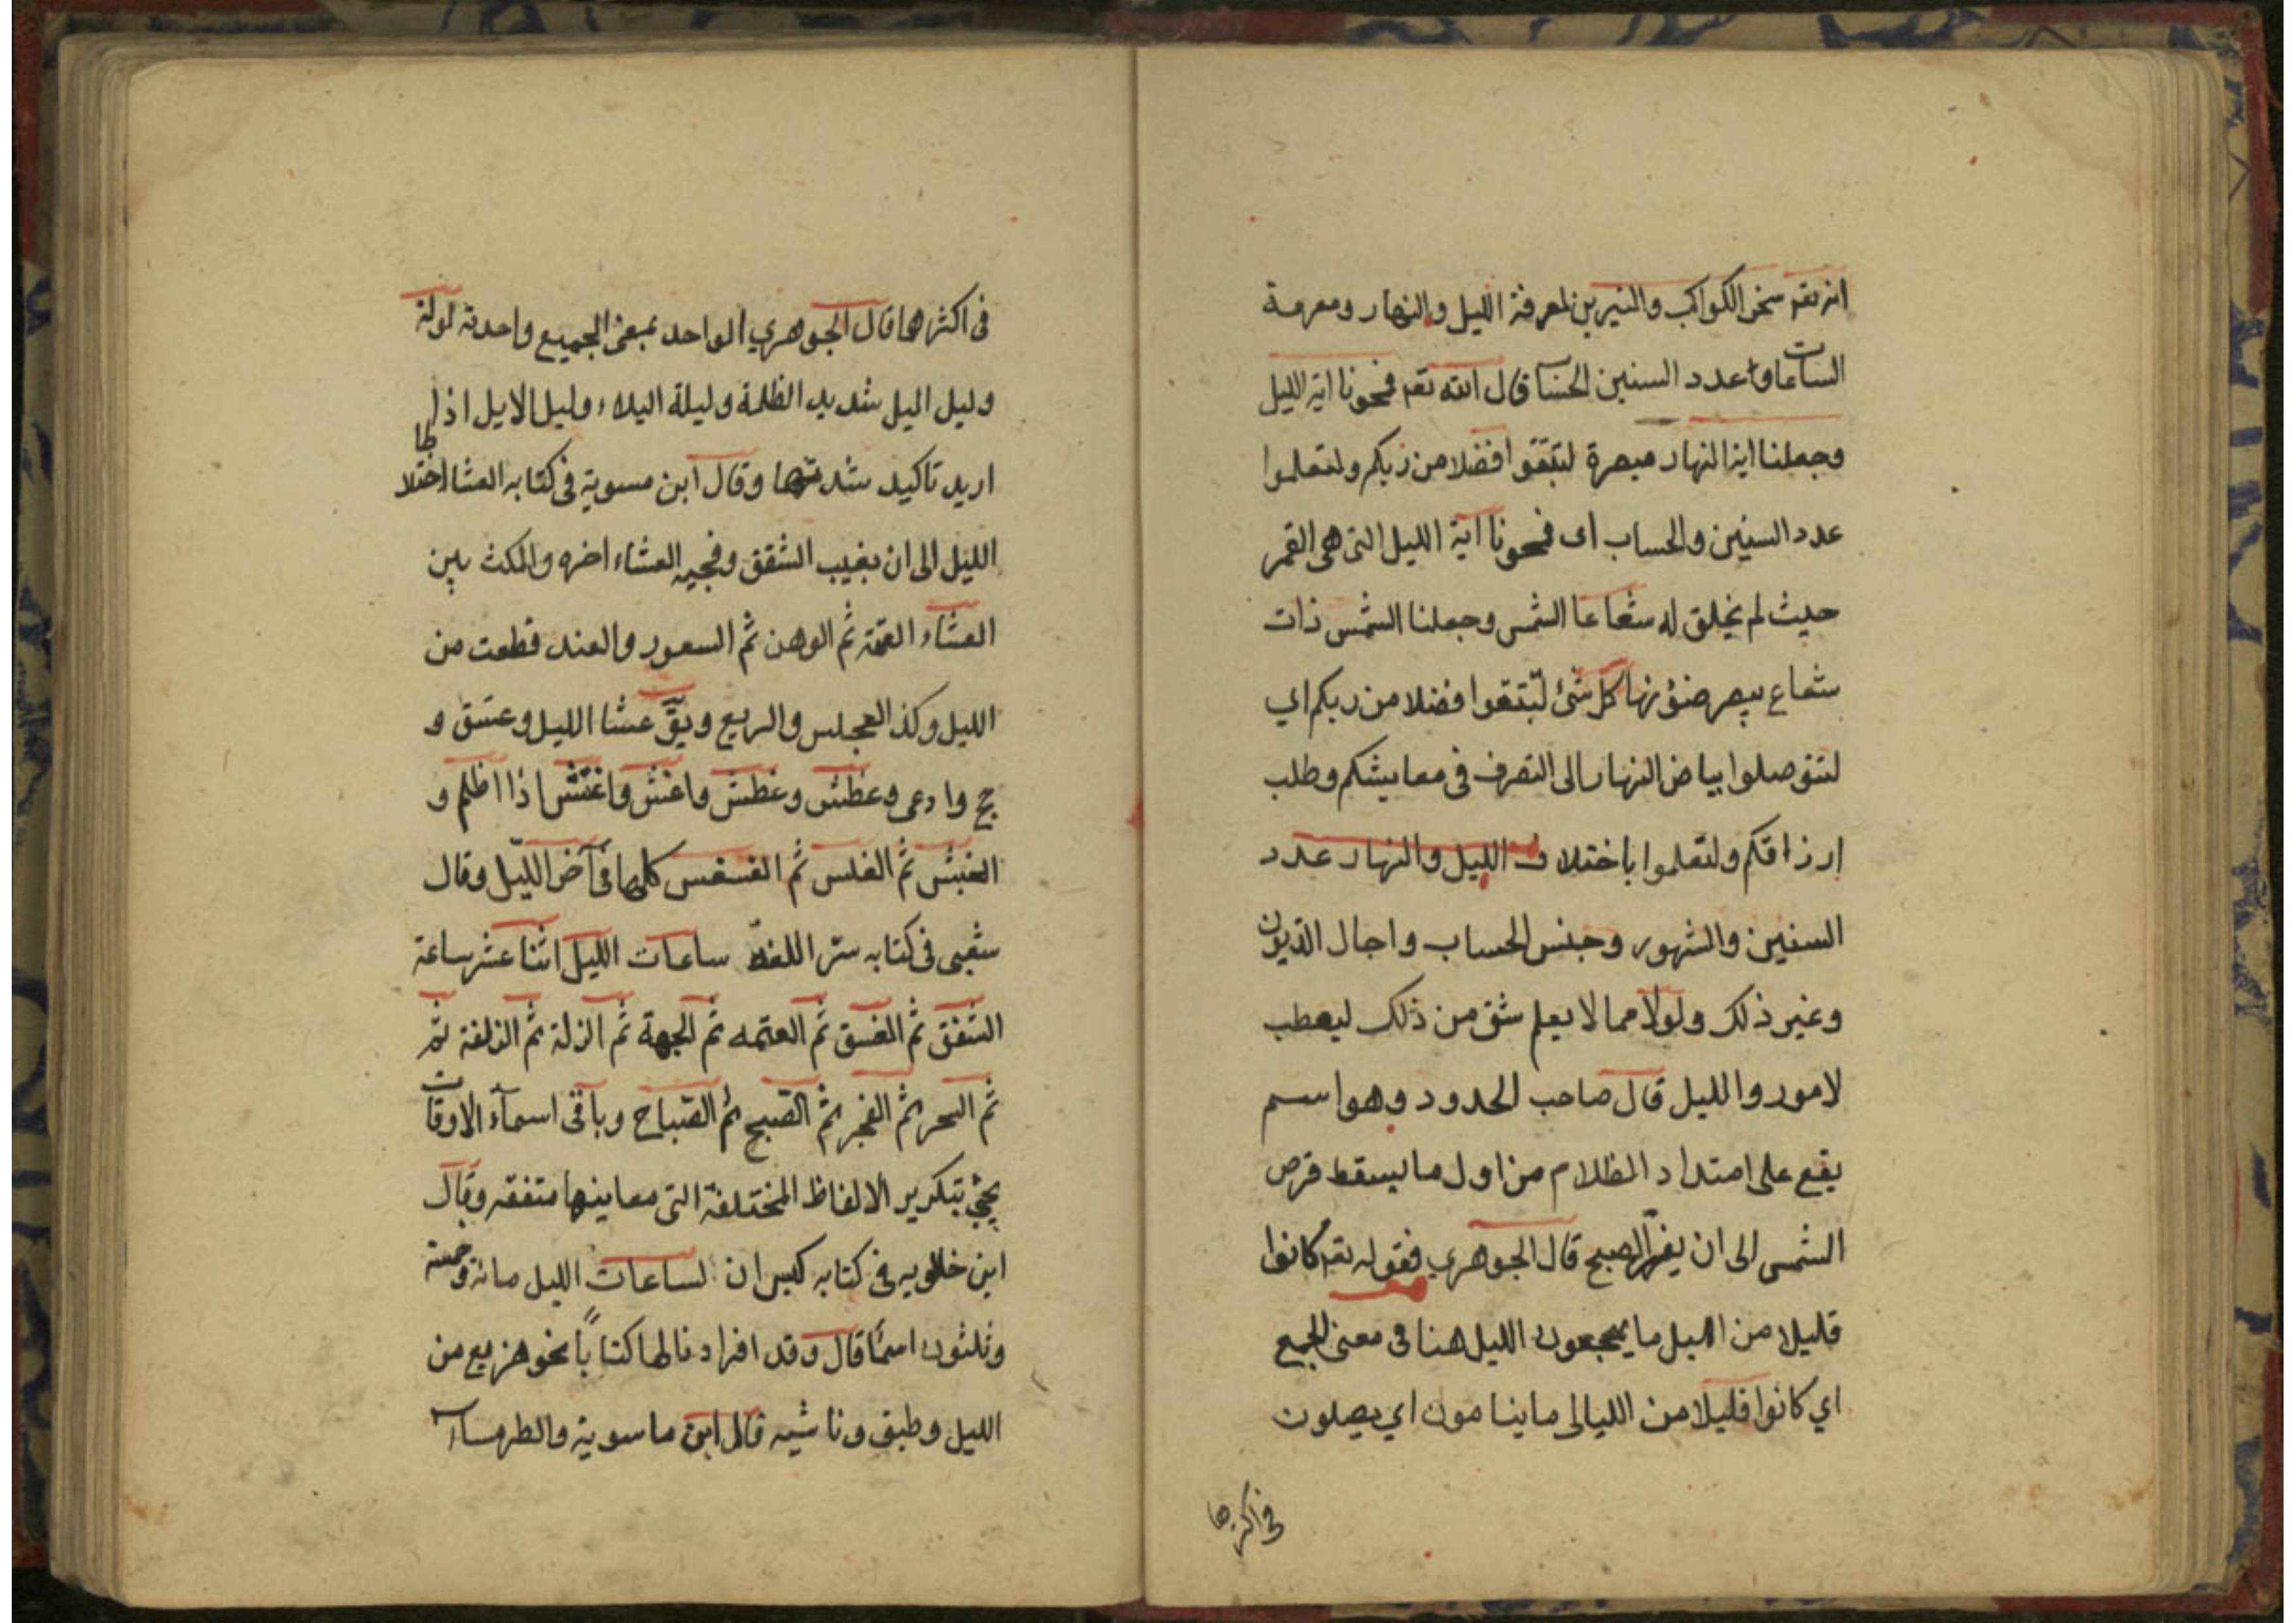 انه تعم سخر الكواكب والنيرين لمعرفة الليل والنهار ومعرمة
الساعات وا عدد السنين الحسا قال الله تعم فمحونا اية الليل
وجعلنا اية النهار مبصرة لتبتغوا فضلا من ربكم ولتعلموا
عدد السنين والحساب اى فمحونا اية الليل التى هى القمر
حيث لم يخلق له شعاعا الشمس وجعلنا الشمس ذات
شعاع يبصر ضؤنها كل شئ لتبتغوا فضلا من ربكم اي
لتتوصلوا بياض النهار الى التصرف فى معايشكم وطلب
ارزاقكم ولتعلموا باختلاف الليل والنهار عدد
السنين والشهور وجنس الحساب واجال الديون
وغير ذلك ولولا مما لا يعلم شئ من ذلك ليعطب
لامور والليل قال صاحب الحدود وهو اسم
يقع على امتداد الظلام من اول ما يسقط قرص
الشمس الى ان يفر الصبح قال الجوهري فقوله تعم كانوا
قليلا من الليل ما يهجعون الليل هنا فى معنى الجمع
اي كانوا قليلا من الليالى ما ينامون اي يصلون
فى اكثرها
فى اكثرها قال الجوهري الواحد بمعنى الجميع واحدته لولة
وليل اليل شديد الظلمة وليلة اليلاء وليل الايل اذا
اريد تاكيد شدتها وقال ابن مسوية فى كتابه العشا اختلاط
الليل الى ان يغيب الشفق وفجيه العشاء اخره والمكث بين
العشاء العتمة ثم الوهن ثم السعور والعند قطعت من
الليل وكذ العجلس والربع ويق عشا الليل وعسق و
جح وادعى وعطش وغطش واغش واغتش اذا اظلم و
الغبش ثم الغلس ثم الغسغس كلها فى آخر الليل وقال
شعبى فى كتابه ستر اللغة ساعات الليل اثنا عشر ساعة
الشفق ثم الغسق ثم العتمه ثم الجهة ثم الزلة ثم الزلفة ثم
ثم السحر ثم الفجر ثم الصبح ثم الصباح وباقى اسمآء الاوقات
يجئ بتكرير الالفاظ المختلفة التى معاينها متفقه وقال
ابن خالويه فى كتابه كبير ان لساعات الليل مائة وخمسة
وثلثون اسمًا قال وقد افرادنا لها كتابًا نحو هزيع من
الليل وطبق وناشيه قال ابن ماسوية والطرمساء